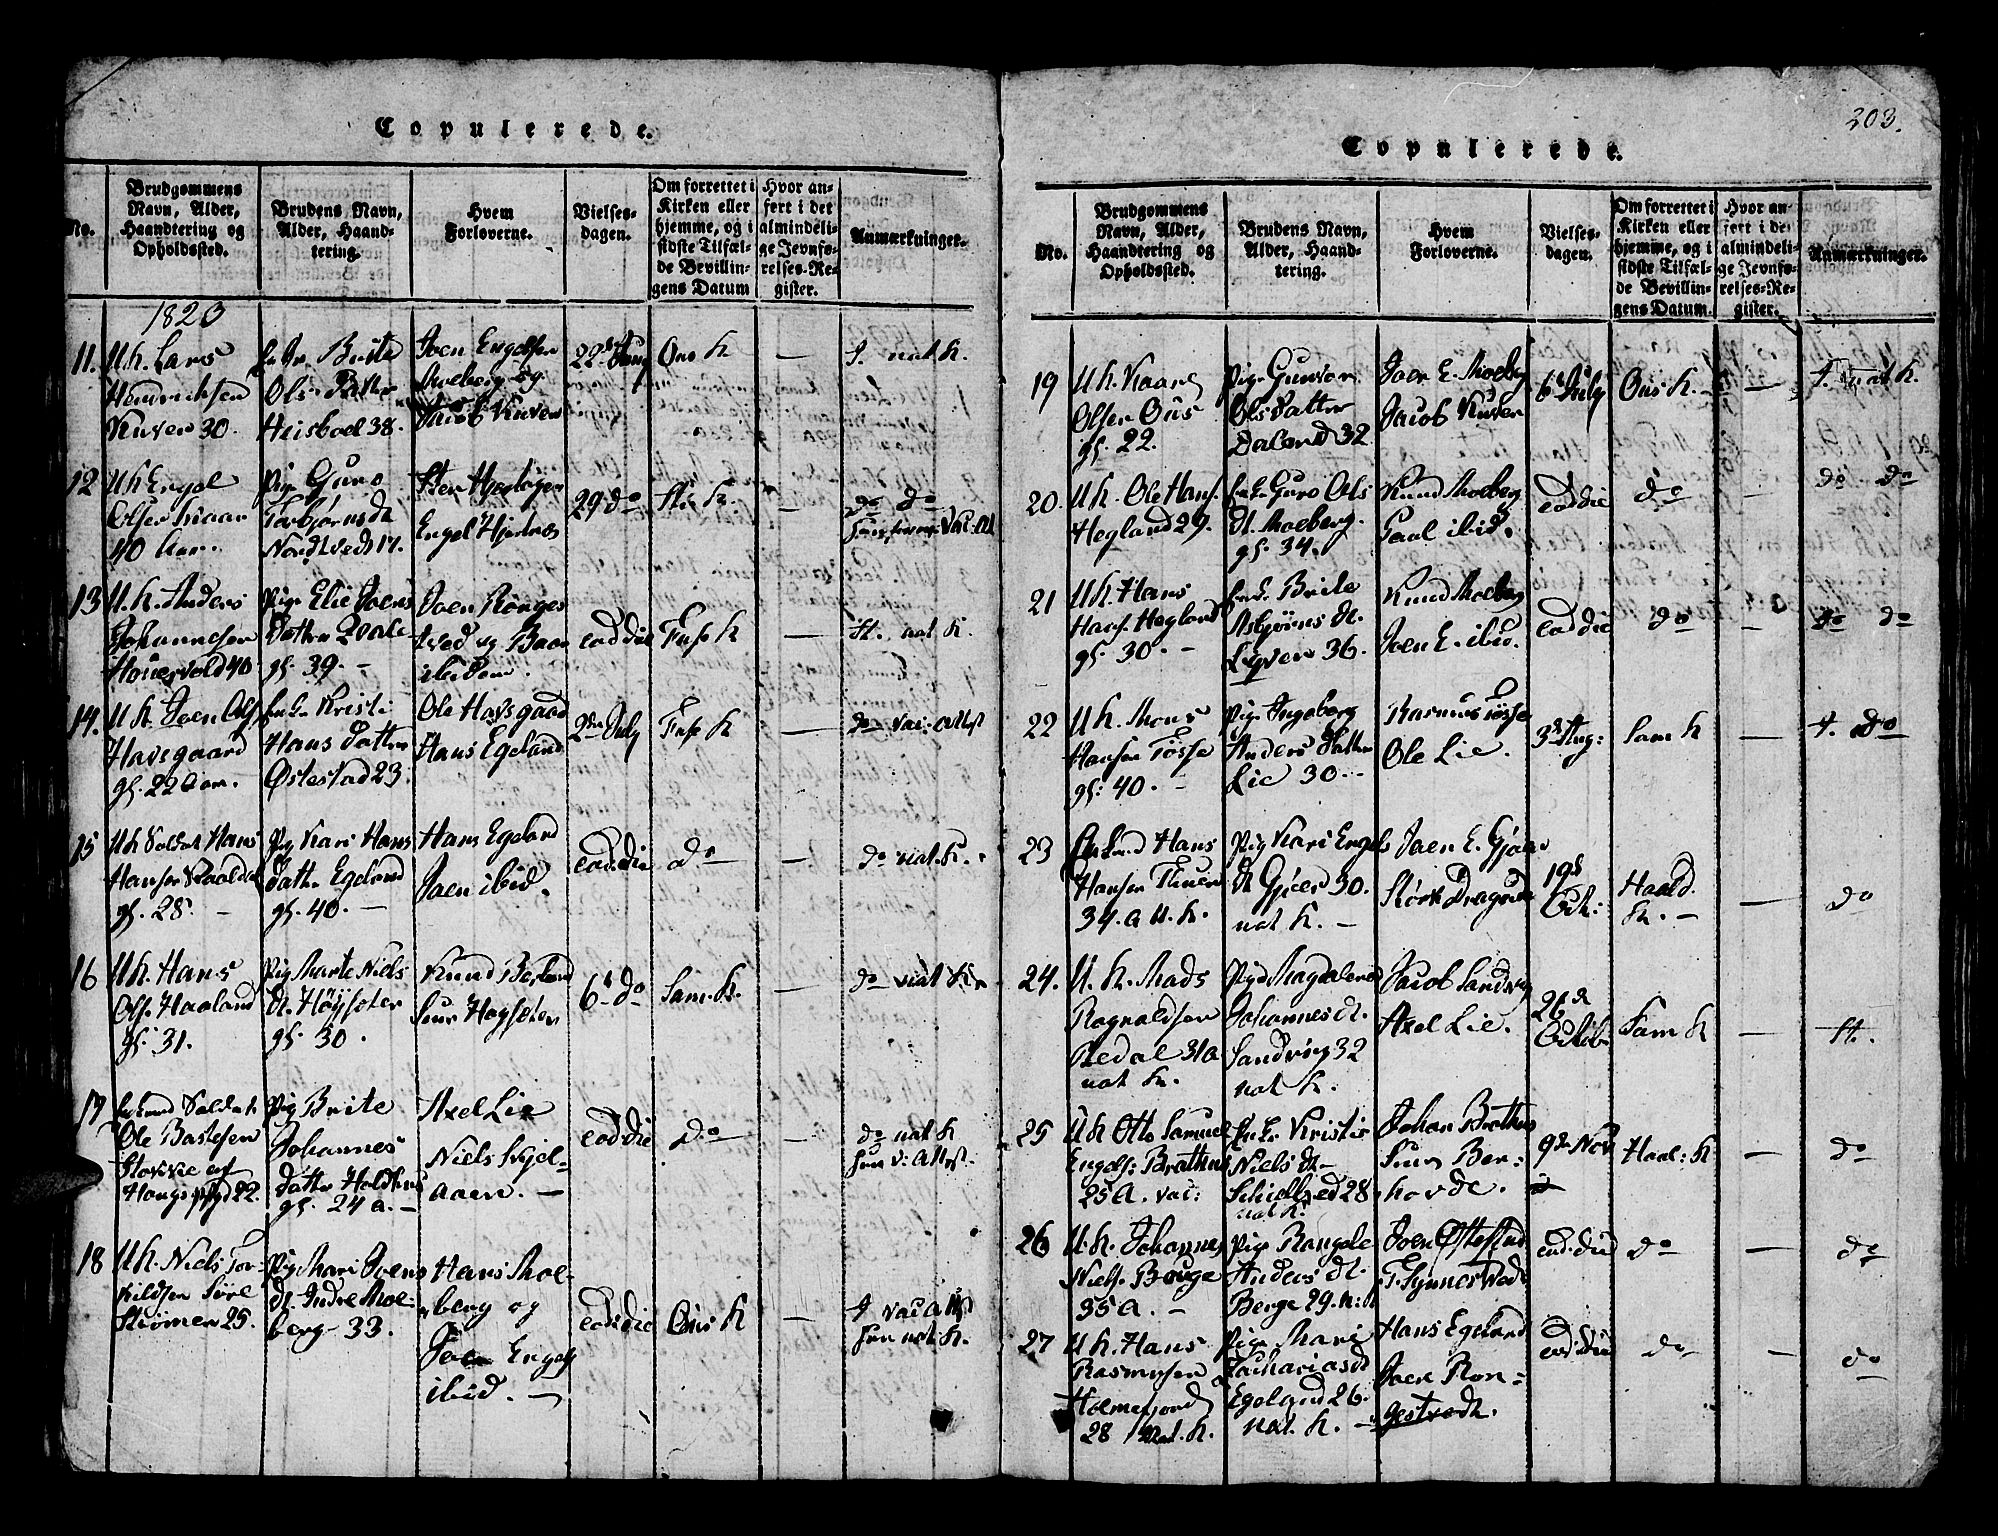 Copulerede.
No.
Brudgommens
Navn, Alder,
Haandtering og
Opholdssted.
Brudens Navn,
Alder, Haand-
tering.
Hvem
Forloverne.
Vielses-
dagen.
Om forrettet i
Kirken eller
hjemme, og i
sidste Tilfæl-
de Bevillin-
gens Datum
Hvor an-
ført i det
almindeli-
ge Jevnfø-
relses-Re-
gister.
Anmærkninger.
1823
11. U.K. Lars
Hendrichsen
Kuven 30.
Enke Brite
Ols Datter
Heisboel 38.
Joen Engelsen
Moeberg og
Jacob Kuven
22d Juny
Ous K
—
J. nat. K.
12 U K Engel
Olsen
40 Aar.
Pige Guro
Torbjørns dt.
Nordtvedt 17.
Engel Hjertnes
29 do
K.
—
do do
vac. att
13 U. K. Anders
Johannesen
40
Pige Elie Joens
Datter
gl. 39. —
Joen Rønges
tved og Baar
ibidem.
eod die
Fuse K
—
H. nat K.
14. U K. Joen Ols.
Havsgaard
gl. 22 Aar.
Enke Kristi
Hans Datter
Østestad 23.
Ole Havsgaard
Hans Egeland
2den July
Fuse K
—
do vac: attest
15 U K Soldat Hans
Hansen
gl. 28. —
Pig Kari Hans
Datter Egeland
gl. 40. —
Hans Egeland
Joen ibid.
eod. die
do
—
do nat. K.
16 U K. Hans
Ols. Haaland
gl. 31.
Pig Marte Niels
dt. Høysæter
gl. 30.
Knud Berland
Siur Høysæter
6t do
Sam. K.
—
do nat K
17 Enkemd Soldat
Ole Bastesen
Hougs 22.
Pig Brite
Johannes
Datter
gl. 24 a. —
Axel Lie
Niels Skjel-
aaen. —
eod die
do
—
do nat K
v: attest
18 U K. Niels Tor-
kildsen Søre
Strømen 25.
Pig Mari Joens
dt. Indre Moe-
berg 33.
Hans Moe-
berg og
Joen Engels
ibid. —
eod: die
Ous K
—
J vac attest
nat. K.
203.
Copulerede.
No.
Brudgommens
Navn, Alder,
Haandtering og
Opholdssted.
Brudens Navn,
Alder, Haand-
tering.
Hvem
Forloverne.
Vielses-
dagen.
Om forrettet i
Kirken eller
hjemme, og i
sidste Tilfæl-
de Bevillin-
gens Datum.
Hvor an-
ført i det
almindeli-
ge Jevnfø-
relses-Re-
gister.
Anmærkninger.
19 U K. Kaare
Olsen Ous
gl. 22.
Pige Gunvor
Ols Datter
Daland 32
Joen E. Moeberg
Jacob Kuven
6t July
Ous K.
—
J. nat K.
20. U K. Ole Hans.
Hegland 29.
Enke Guro Ols
dt. Moeberg.
gl. 34.
Knud Moeberg
Paal ibid.
eod die
do
—
do do
21 U K. Hans
Hans. Hegland
gl. 30. —
Enke Brite
Asbjørns dt.
Lyven 36.
Knud Moeberg
Joen E. ibid.
eod die
do
—
do do
22 U K. Mons
Hansen Tøsse
gl: 40. —
Pige Ingeborg
Anders Datter
Lie 30. —
Rasmus Tøsse
Ole Lie.
3d Aug:
Sam K
—
J. do
23 Enkemd Hans
Hansen
34. a U. K.
Pig Kari Engels
dt Gjøen 30.
nat K. —
Joen E. Gjøen
Størk Dragsund
19d
Oct:
Haald
K. —
—
do
24. U. K. Mads
Ragnaldsen
Redal 31 a
nat K.
Pige Magdalena
Johannes dt.
Sandvig 32
nat K.
Jacob Sandvig
Axel Lie.
26d
Octob.
Sam K
—
H.
25 U K Otto Samuel
Engels: Brathus
25 A. vac:
Enke Kristi
Niels dt
28
nat K.
Johan Brathus
Siur Ber-
hovde.
9de Nov
Haal: K
—
do
26 U. K. Johannes
Niels. Berge
35 a. —
Pige Rangele
Anders dt.
Berge 29. n: K
Joen Østestad
T. Synnestved
eod: die
do
—
do
27 U K. Hans
Rasmusen
Holmefjord
28 nat. K.
Pige Mari
Zachariasdt
Egeland 26.
nat. K. —
Hans Egeland
Joen Røn-
gestvedt.
eod: die
do
—
do